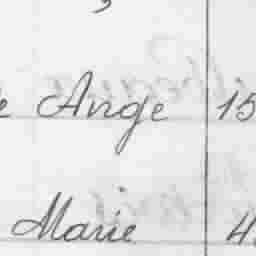 Ange 15
Marie 4